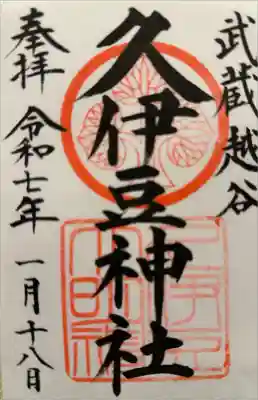 武蔵越谷
久伊豆神社
奉拝
令和七年一月十八日